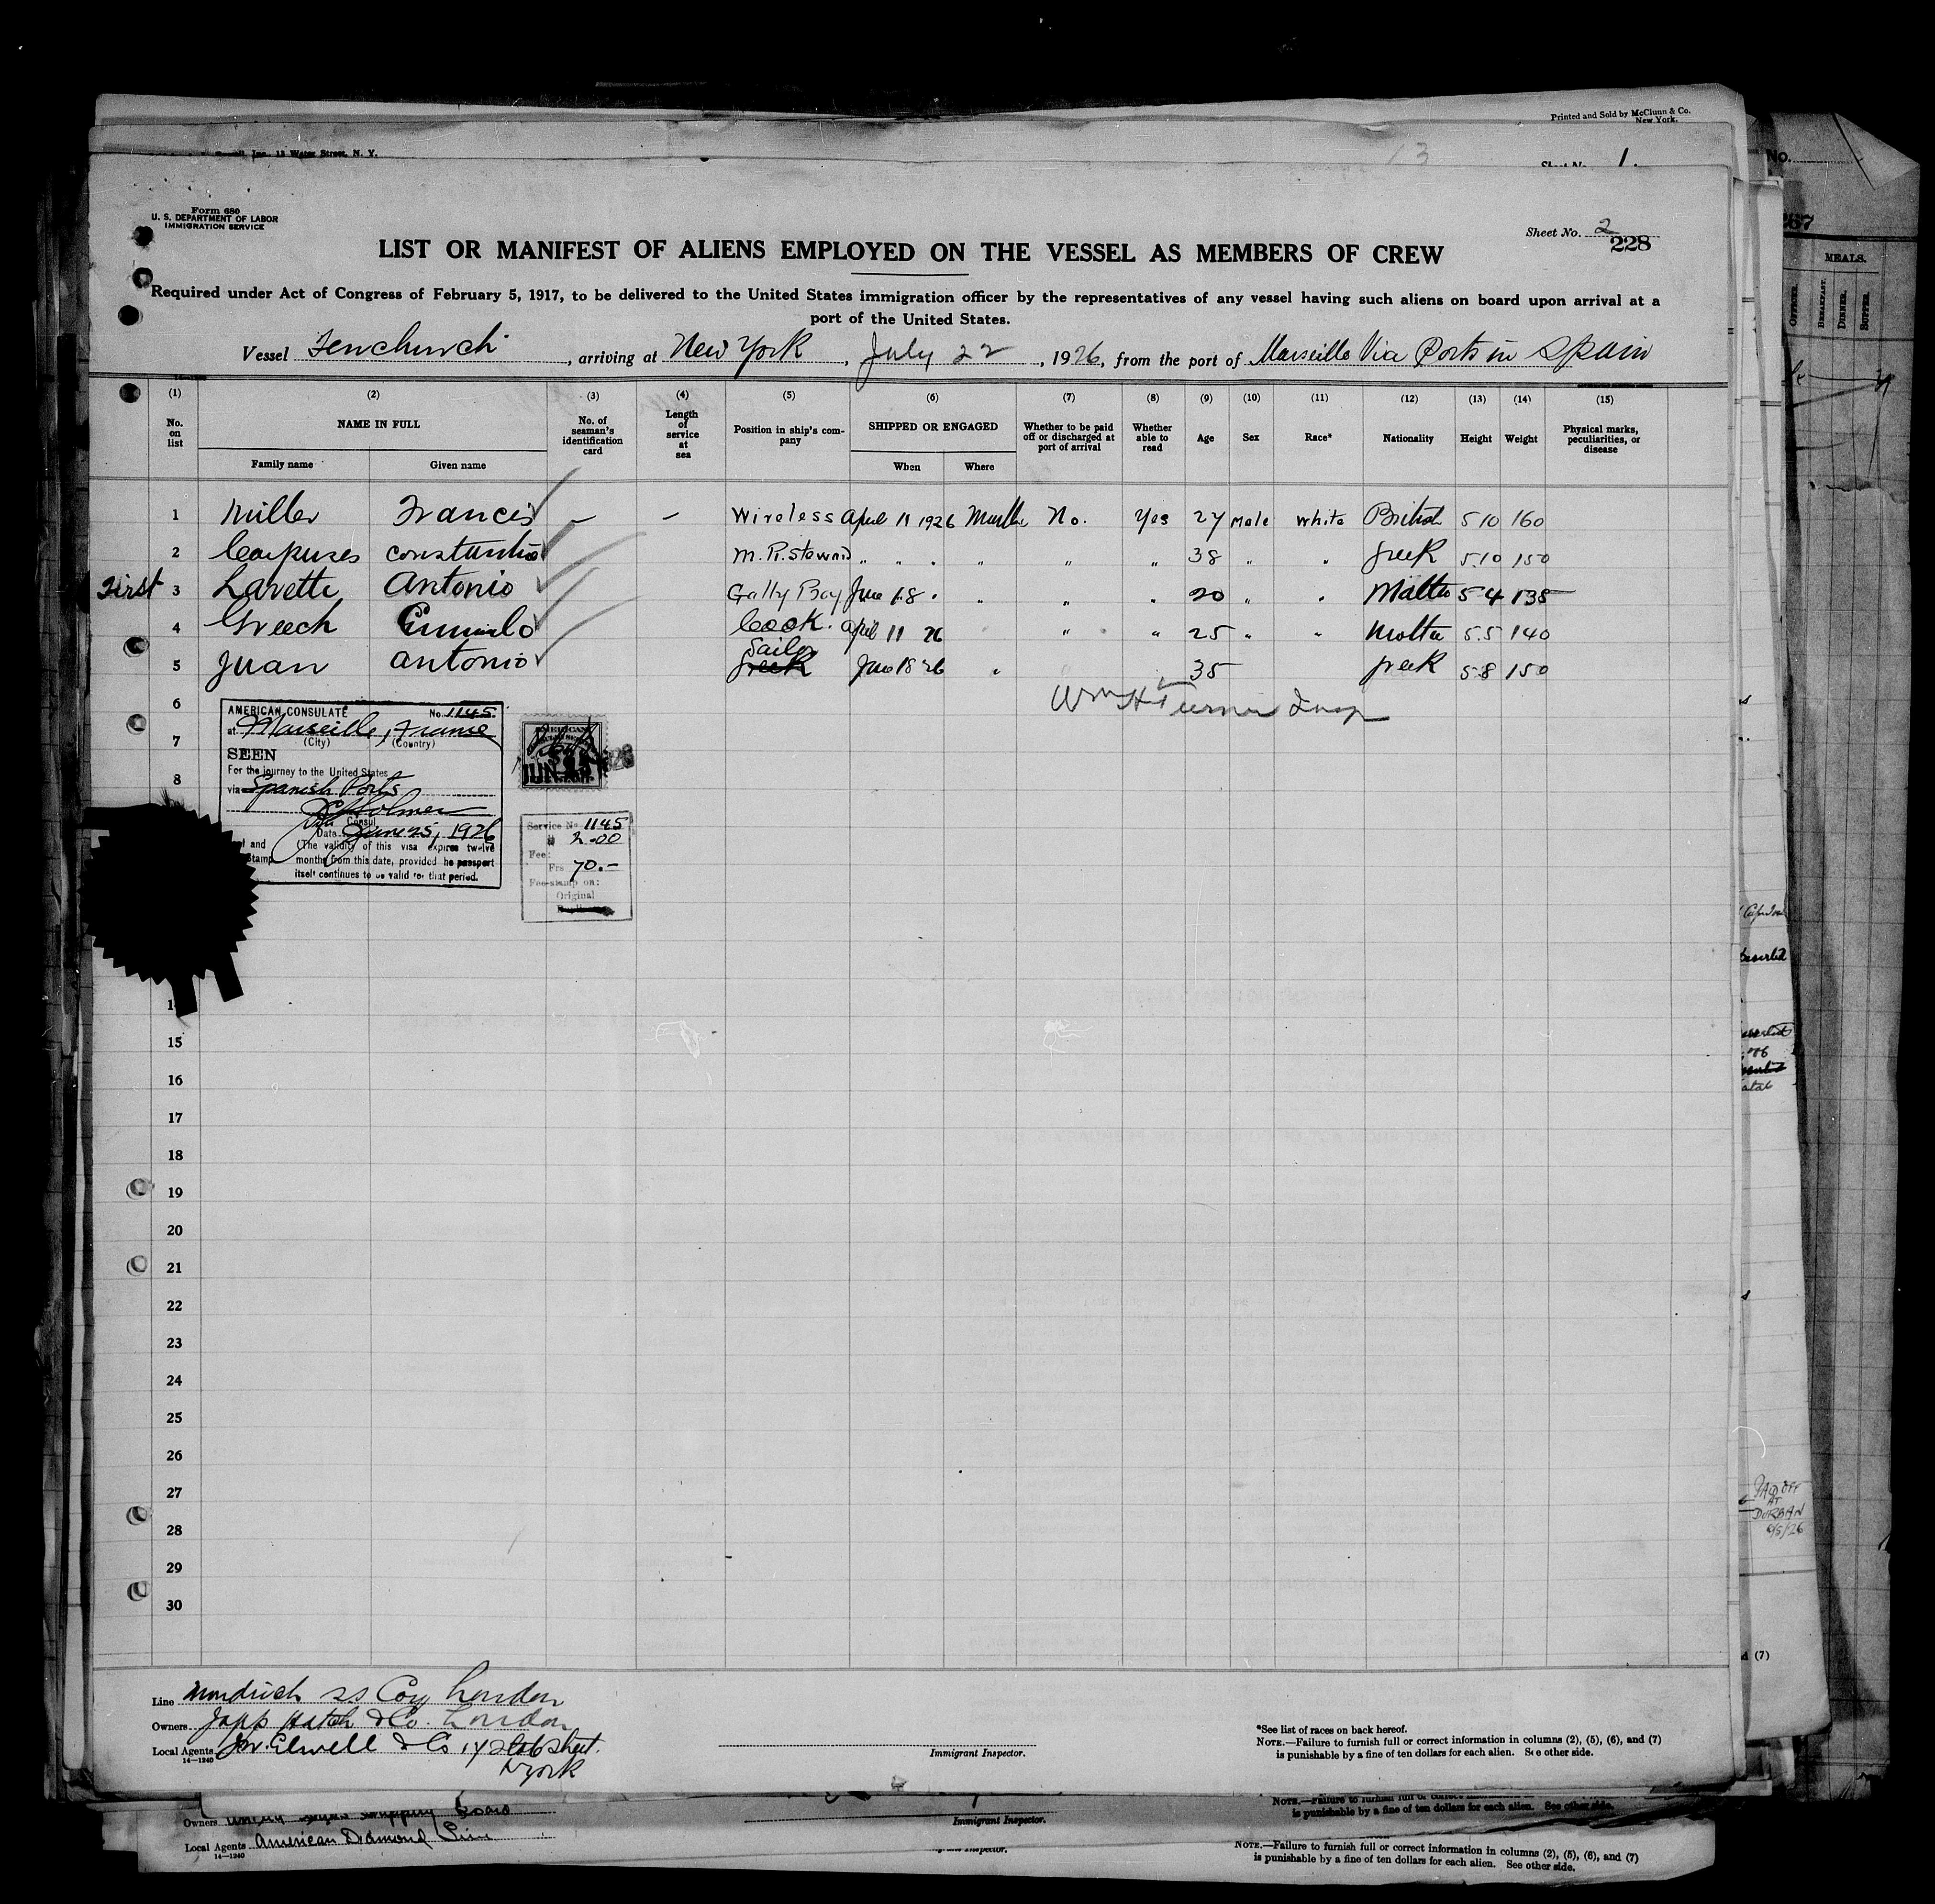 Printed and Sold by McClunn & Co.
New York.
Inc. 13 Water Street, N. Y.
13
Sheet No. 1.
No.
267
Form 680
U. S. DEPARTMENT OF LABOR
IMMIGRATION SERVICE
Sheet No. 2
228
LIST OR MANIFEST OF ALIENS EMPLOYED ON THE VESSEL AS MEMBERS OF CREW
Required under Act of Congress of February 5, 1917, to be delivered to the United States immigration officer by the representatives of any vessel having such aliens on board upon arrival at a
port of the United States.
Vessel Fenchurch, arriving at New York, July 22, 1926, from the port of Marseille Via Ports in Spain
MEALS.
OFFICER BREAKFAST. DINNER. SUPPER.
(1) (2) (3) (4) (5) (6) (7) (8) (9) (10) (11) (12) (13) (14) (15)
No. on list
NAME IN FULL
Family name
Given name
No. of seaman's identification card
Length of service at sea
Position in ship's company
SHIPPED OR ENGAGED
When
Where
Whether to be paid off or discharged at port of arrival
Whether able to read
Age
Sex
Race*
Nationality
Height
Weight
Physical marks, peculiarities, or disease
1 Miller Francis – – Wireless April 11 1926 No. Yes 27 Male White British 5 10 160
2 M. R. Steward " " " " " " 38 " " Greek 5.10 150
First 3 Antonio Gally Boy June 18 " " " " 20 " " 5 4 135
4 Greech Cook. April 11 26 " " 25 " " 5.5 140
5 Juan Antonio Sailor Greek June 18 26 " 35 Greek 5 8 150
6 Wm H Turner Insp
7
8
AMERICAN CONSULATE No. 1145
at Marseille, France
(City) (Country)
SEEN
For the journey to the United States
via Spanish Ports
Vice Consul
Date June 25, 1926
(The validity of this visa expires twelve
months from this date, provided he passport
itself continues to be valid for that period.
and
Stamp
AMERICAN
JUN
Service No 1145
2.00
Fee:
Frs 70.–
Fee-stamp on:
Original
Duplicate
15
16
17
18
19
20
21
22
23
24
25
26
27
28
29
30
PAID OFF
AT
DURBAN
6/5/26
(7)
Line SS Coy London
Owners Japp Hatch & Co. London
Local Agents J.W. Elwell & Co 17 State Street.
N York
14—1240
Immigrant Inspector.
*See list of races on back hereof.
NOTE.—Failure to furnish full or correct information in columns (2), (5), (6), and (7)
is punishable by a fine of ten dollars for each alien. See other side.
Owners Shipping Board
Local Agents American Diamond Line
14—1240
Immigrant Inspector.
NOTE.—Failure to furnish full or correct
is punishable by a fine of ten dollars for each alien. See other side.
NOTE.—Failure to furnish full or correct information in columns (2), (5), (6), and (7)
is punishable by a fine of ten dollars for each alien. See other side.